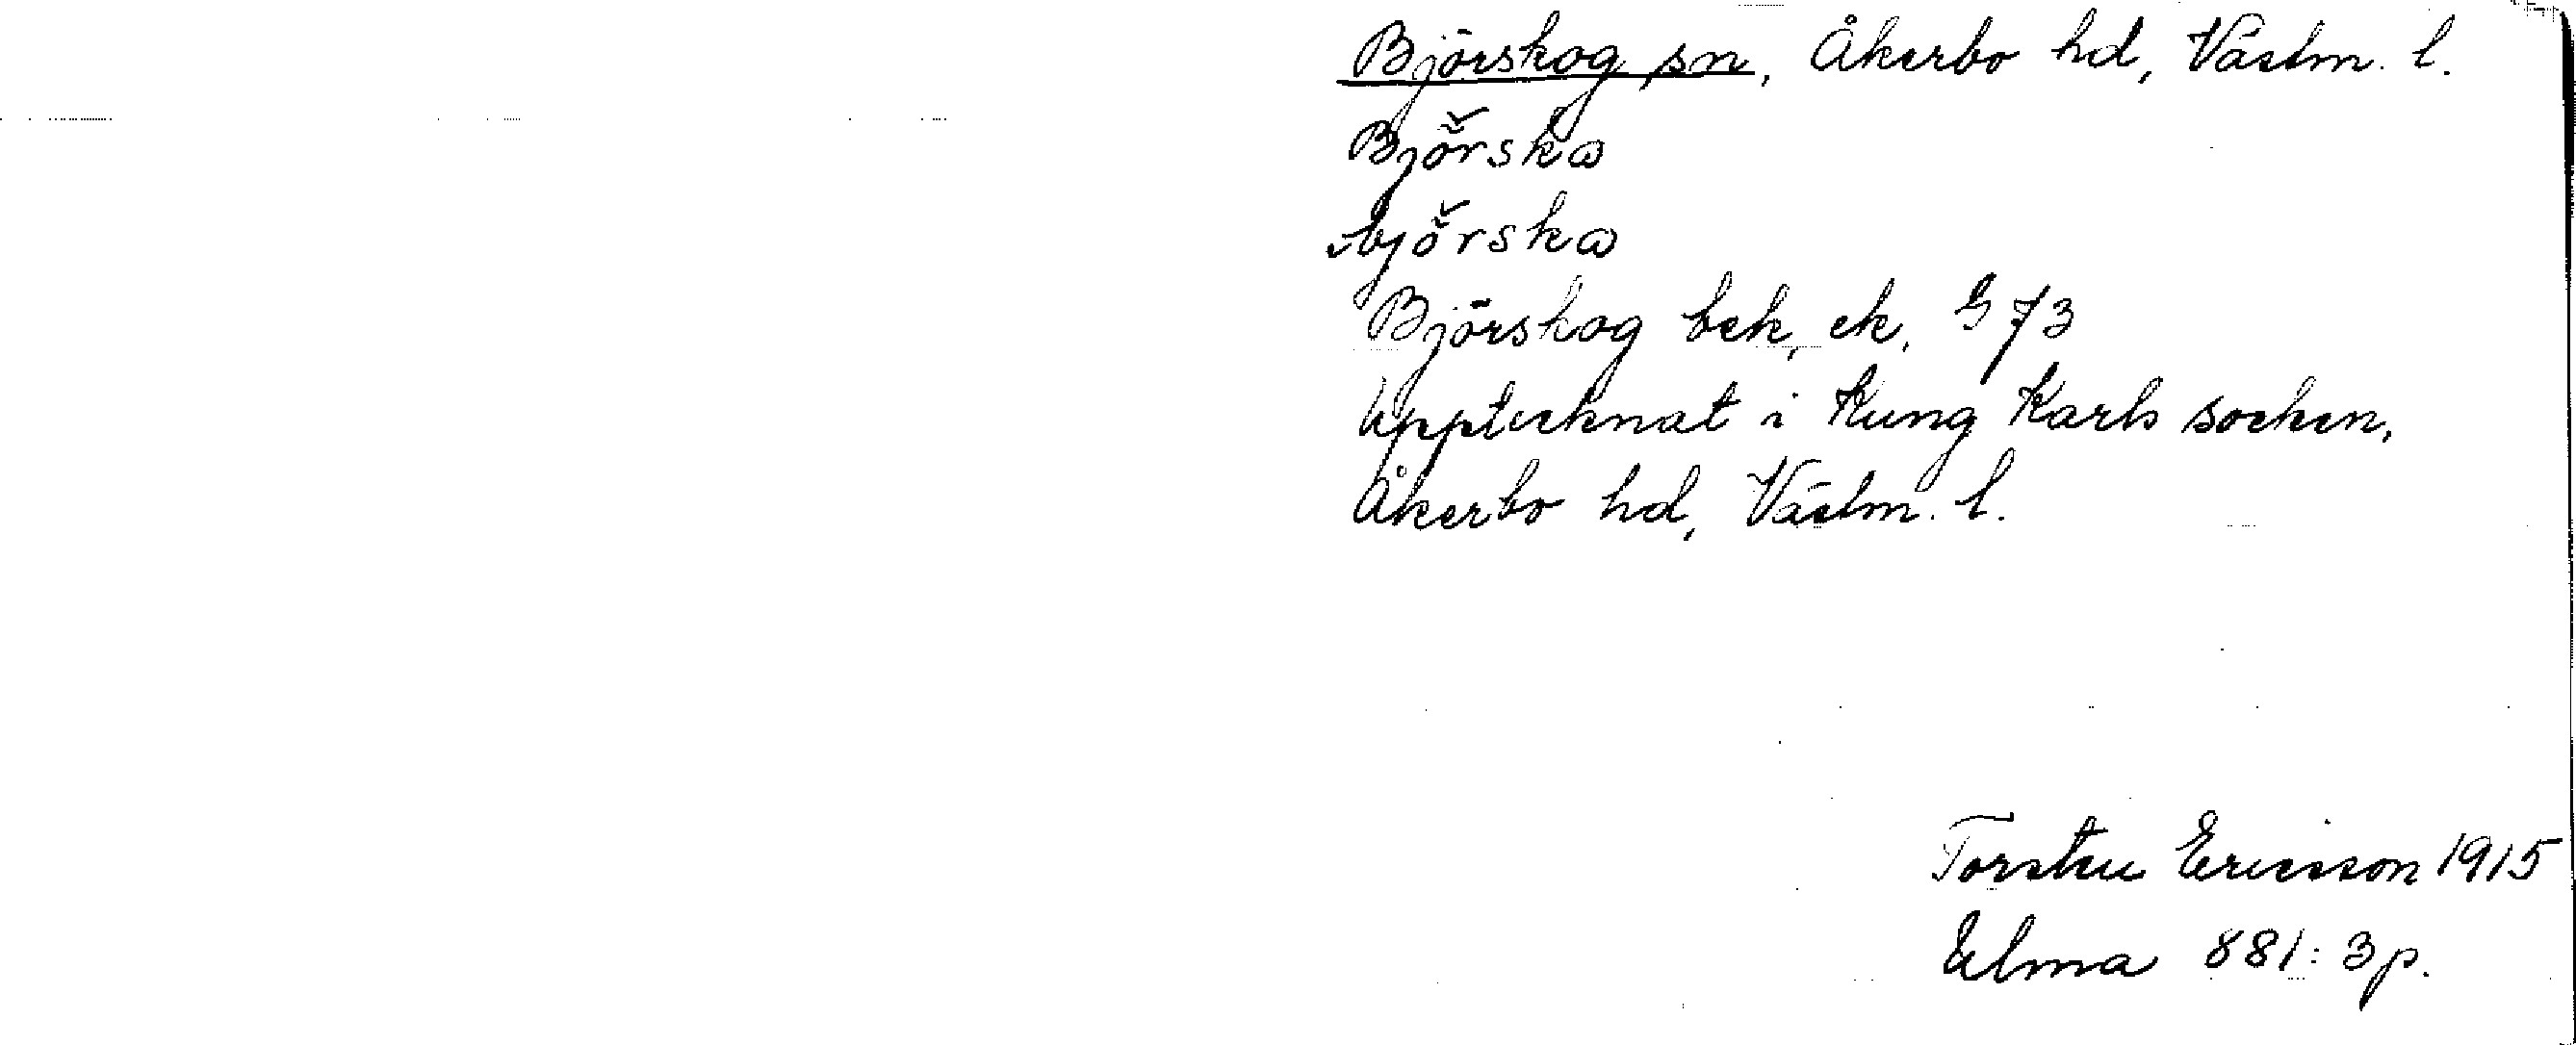 Björskog sn, Åkerbo hd, Västm. l.
Björska
björska
Björskog bek, ek, G 73
Upptecknat i Kung Karls socken,
Åkerbo hd, Västm. l.
Torsten Ericsson 1915
Ulma 881: 3 p.